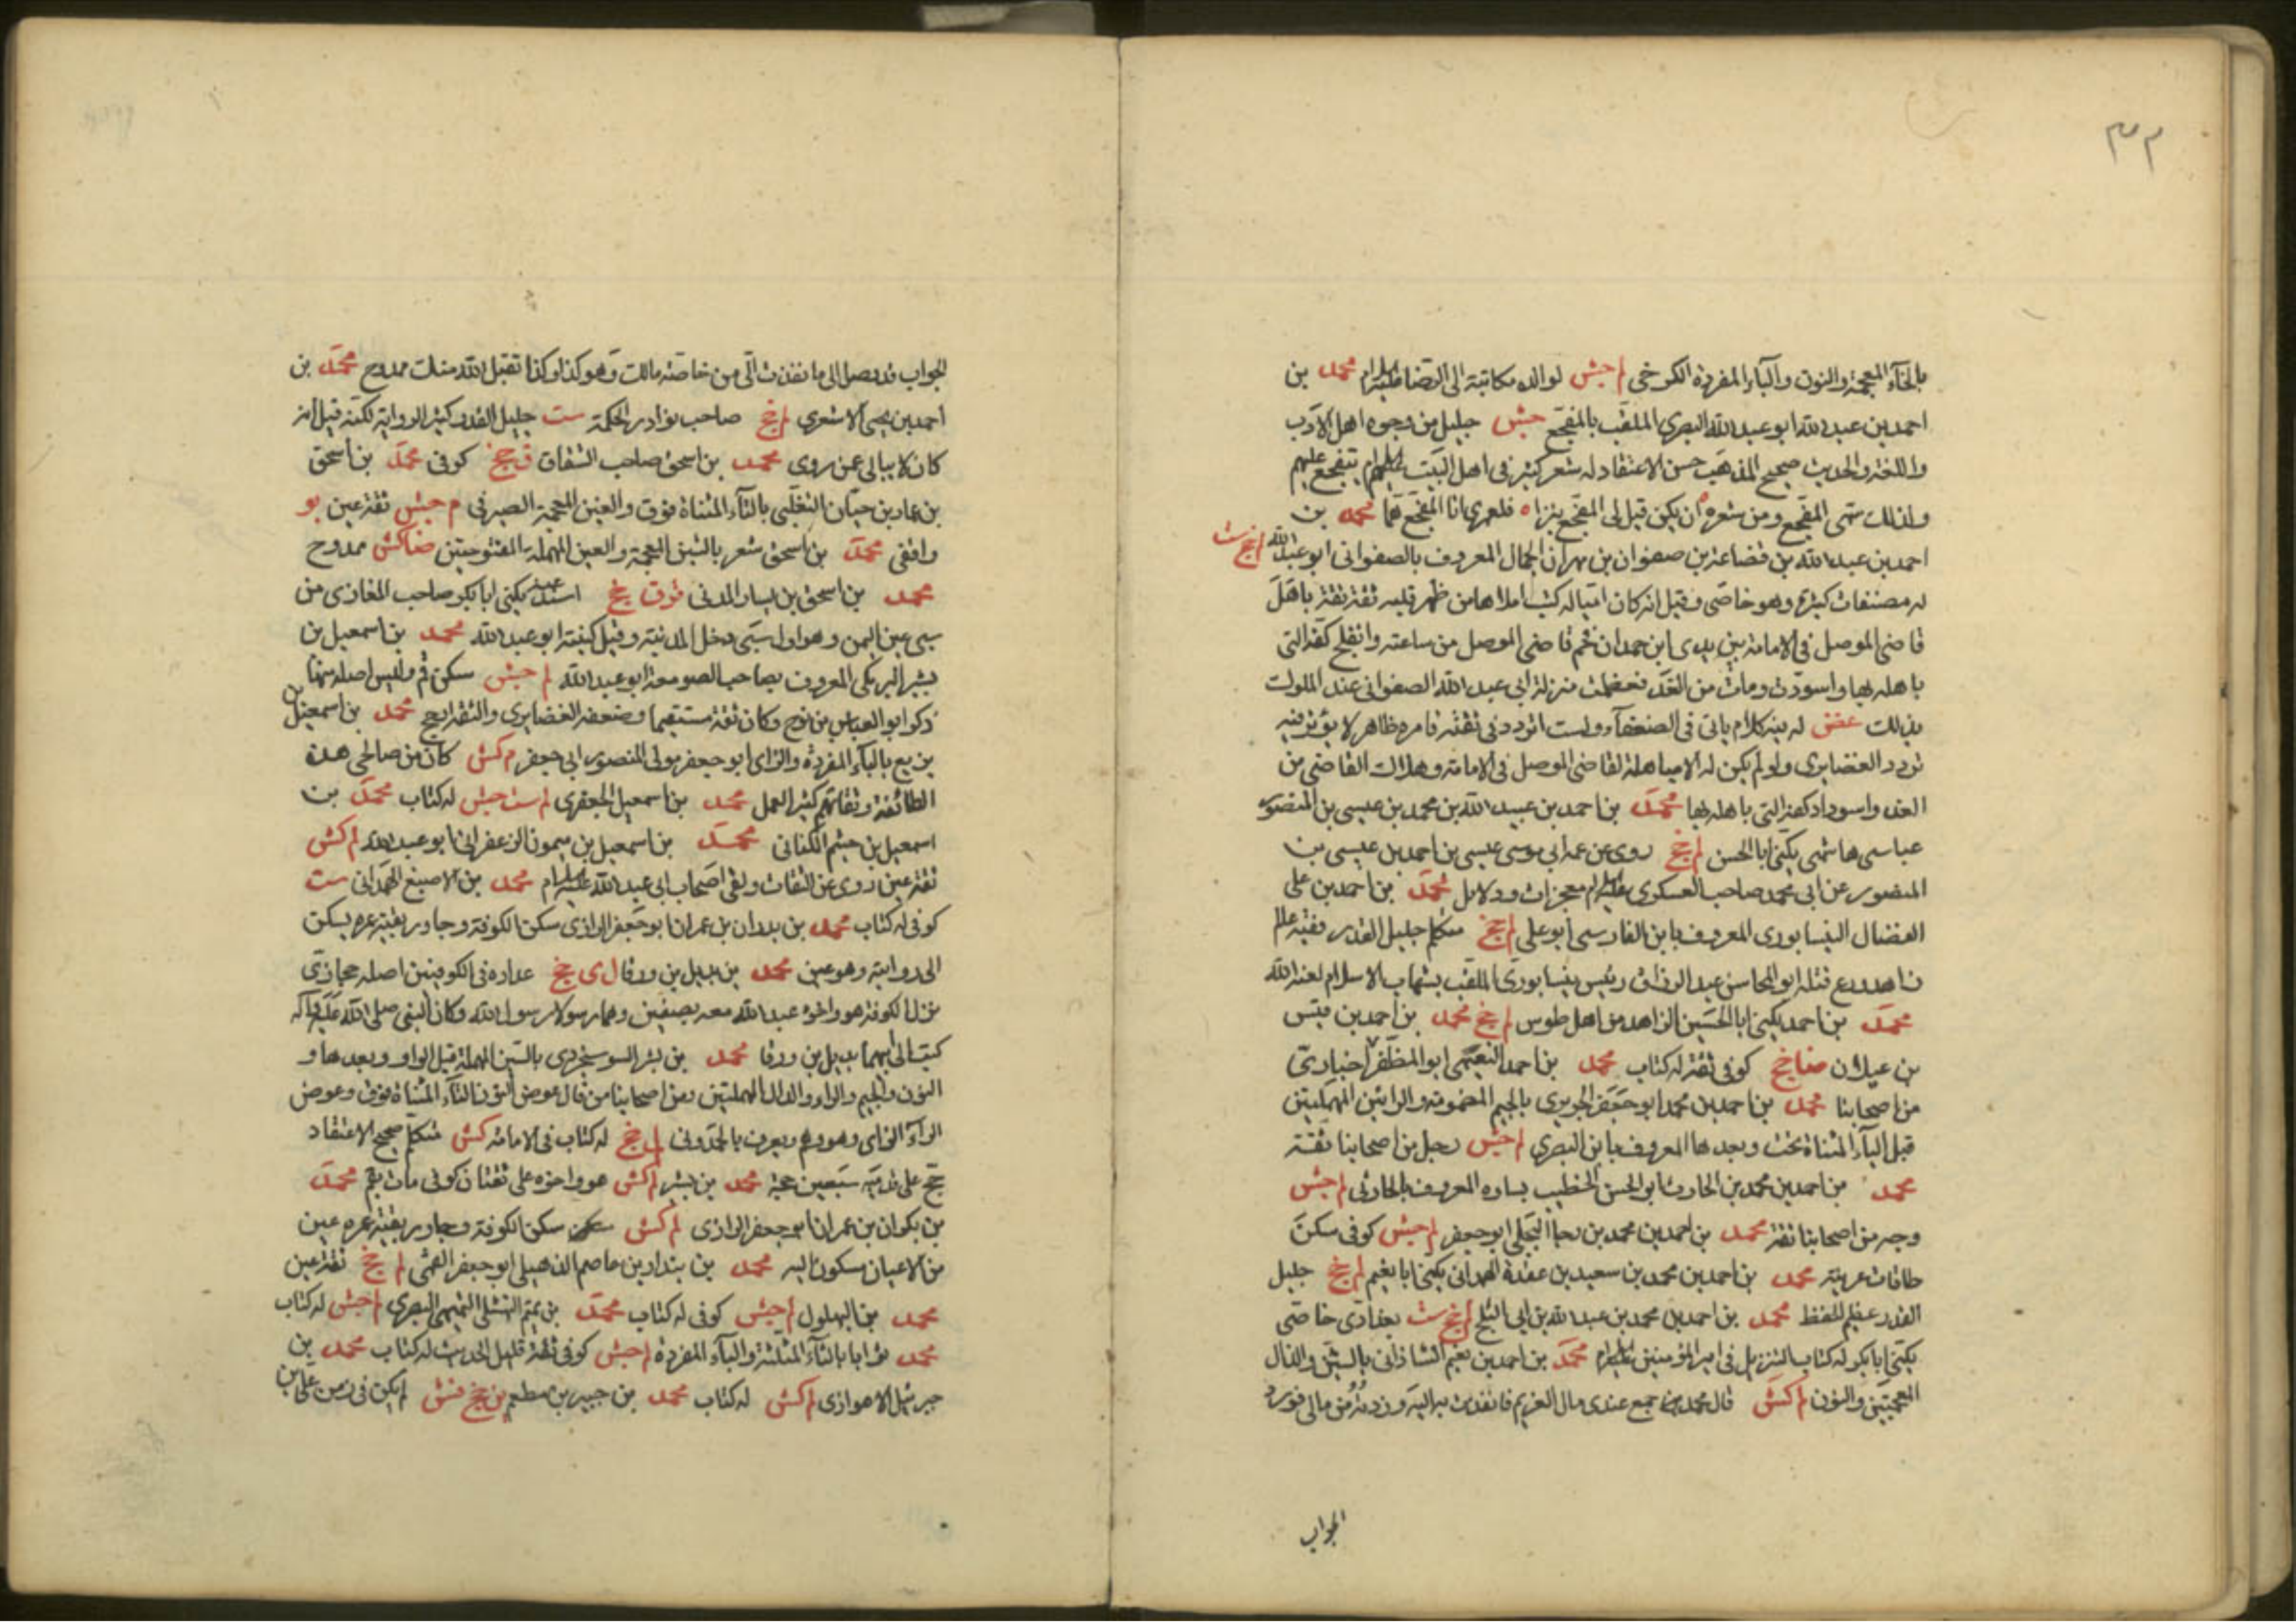 بالخاء المعجمة والنون والباء المفردة الكرخي لم جش لوالده مكاتبة الى الرضا عليه السلام محمد بن
احمد بن عبد الله ابو عبد الله البصري الملقب بالمفجع جش جليل من وجوه اهل الادب
واللغة والحديث صحيح المذهب حسن الاعتقاد له شعر كثير في اهل البيت عليهم السلام يتفجع عليهم
ولذلك سمى المفجع ومن شعره ان يكن قيل لى المفجع نبزا ه فلعمري انا المفجع هما محمد بن
احمد بن عبد الله بن قضاعة بن صفوان بن مهران الجمال المعروف بالصفواني ابو عبد الله لم جخ ست
له مصنفات كثيرة وهو خاصى وقيل انه كان اميا له كتب املاها من ظهر قلبه ثقة ثقة باهل
قاضى الموصل في الامامة بين يدى ابن حمدان فحم قاضى الموصل من ساعته وانفلج كفه التى
باهله بها واسودت ومات من الغد فعظمت منزلة ابى عبد الله الصفواني عند الملوك
بذلك غض له فيه كلام ياتى في الضعفاء ولست اتردد في ثقته فامره ظاهر لا يؤثر فيه
تردد الغضايرى ولو لم يكن له الا مباهلة لقاضى الموصل في الامامة وهلاك القاضى من
الغد واسوداد كفه التى باهله بها محمد بن احمد بن عبيد الله بن محمد بن عيسى بن المنصور
عباسى هاشمى يكنى ابا الحسن لم جخ روى عن عمه ابى موسى عيسى بن احمد بن عيسى بن
المنصور عن ابى محمد صاحب العسكرى عليه السلام معجزات ودلايل محمد بن احمد بن على
الفضال النيسابورى المعروف بابن الفارسى ابو على لم جخ متكلم جليل القدر فقيه عالم
زاهد ورع قتله ابو المحاسن عبد الرزاق رئيس نيسابور الملقب بشهاب الاسلام لعنه الله
محمد بن احمد يكنى ابا الحسين الزاهد من اهل طوس لم جخ محمد بن احمد بن قيس
بن غيلان ضا جخ كوفى ثقة له كتاب محمد بن احمد النعيمى ابو المظفر اخبارى
من اصحابنا محمد بن احمد بن محمد ابو جعفر الجريرى بالجيم المضمومة والرائين المهملتين
قبل الياء المثناة تحت وبعدها المعروف بابن البصري لم جش رجل من اصحابنا ثقة
محمد بن احمد بن محمد بن الحارث ابو الحسن الخطيب بساوه المعروف بالحارثى لم جش
وجه من اصحابنا ثقة محمد بن احمد بن محمد بن رجا البجلى ابو جعفر لم جش كوفى سكن
طاقات عرينة محمد بن احمد بن محمد بن سعيد بن عقدة الهمدانى يكنى ابا نعيم لم جخ جليل
القدر عظيم الحفظ محمد بن احمد بن محمد بن عبد الله بن ابى الثلج لم جخ ست بغدادى خاصى
يكنى ابا بكر له كتاب التنزيل في امير المؤمنين عليه السلام محمد بن احمد بن نعيم الشاذانى بالشين والذال
المعجمتين والنون لم كش قال محمد جمع عندى مال الغريم فانفذت به اليه وزدته من مالى فورد
الجواب
الجواب قد وصل الى ما نفذت الى من خاصة مالك وهو كذا وكذا تقبل الله منك ممدوح محمد بن
احمد بن يحيى الاشعري لم جخ صاحب نوادر الحكمة ست جليل القدر كثير الرواية لكنه قيل انه
كان لا يبالى عن من روى محمد بن اسحق صاحب الشقاق ق جخ كوفى محمد بن اسحق
بن عمار بن حيان التغلبى بالتاء المثناة فوق والغين المعجمة الصيرفى م جش ثقة عين يو
واقفى محمد بن اسحق شعر بالشين المعجمة والعين المهملة المفتوحتين ضا كش ممدوح
محمد بن اسحق بن يسار المدنى قر ق جخ اسند عنه يكنى ابا بكر صاحب المغازى من
سبى عين اليمن وهو اول سبى دخل المدنية وقيل كنيته ابو عبد الله محمد بن اسمعيل بن
بشير البرمكى المعروف بصاحب الصومعة ابو عبد الله لم جش سكن قم وليس اصله منها
ذكر ابو العباس بن نوح وكان ثقة مستقيما وضعفه الغضايرى والثقة ارجح محمد بن اسمعيل
بن بزيع بالباء المفردة والزاى ابو جعفر مولى المنصور ابى جعفر م كش كان من صالحى هذه
الطائفة وثقاتهم كثير العمل محمد بن اسمعيل الجعفرى لم ست جش له كتاب محمد بن
اسمعيل بن خيثم الكنانى محمد بن اسمعيل بن ميمون الزعفرانى ابو عبد الله لم كش
ثقة عين روى عن الثقات ولقى اصحاب ابى عبد الله عليه السلام محمد بن الاصبغ الهمدانى ست
كوفى له كتاب محمد بن بدران بن عمران ابو جعفر الرازى سكن الكوفة وجاور بقية عمره يسكن
الى روايته وهو عين محمد بن بديل بن ورقا ل ى جخ عداده في الكوفيين اصله حجازى
نزل الكوفة هو واخوه عبد الله معه بصفين وهما رسولا رسول الله وكان النبى صلى الله عليه وآله
كتب الى ابيهما بديل بن ورقا محمد بن بشر السوسنجردى بالسين المهملة قبل الواو وبعدها و
النون والجيم والراء والدال المهملتين ومن اصحابنا من قال عوض النون التاء المثناة فوق وعوض
الراء الزاى وهو وهم ويعرف بالحمدونى لم جخ له كتاب في الامامة كش متكلم صحيح الاعتقاد
حج على قدميه سبعين حجة محمد بن بشير لم كش هو واخوه على ثقتان كوفى مات بقم محمد
بن بكران بن عمران ابو جعفر الرازى لم كش سكن سكن الكوفة وجاور بقية عمره عين
من الاعيان مسكون اليه محمد بن بندار بن عاصم الذهيلى ابو جعفر القمى لم جخ ثقة عين
محمد بن البهلول لم جش كوفى له كتاب محمد بن تميم النهشلى التميمى البصرى لم جش له كتاب
محمد ثوابا بالثاء المثلثة والباء المفردة لم جش كوفى ثقة قليل الحديث له كتاب محمد بن
جبرئيل الاهوازى لم كش له كتاب محمد بن جبير بن مطعم ين جخ فش لم يكن في زمن على بن